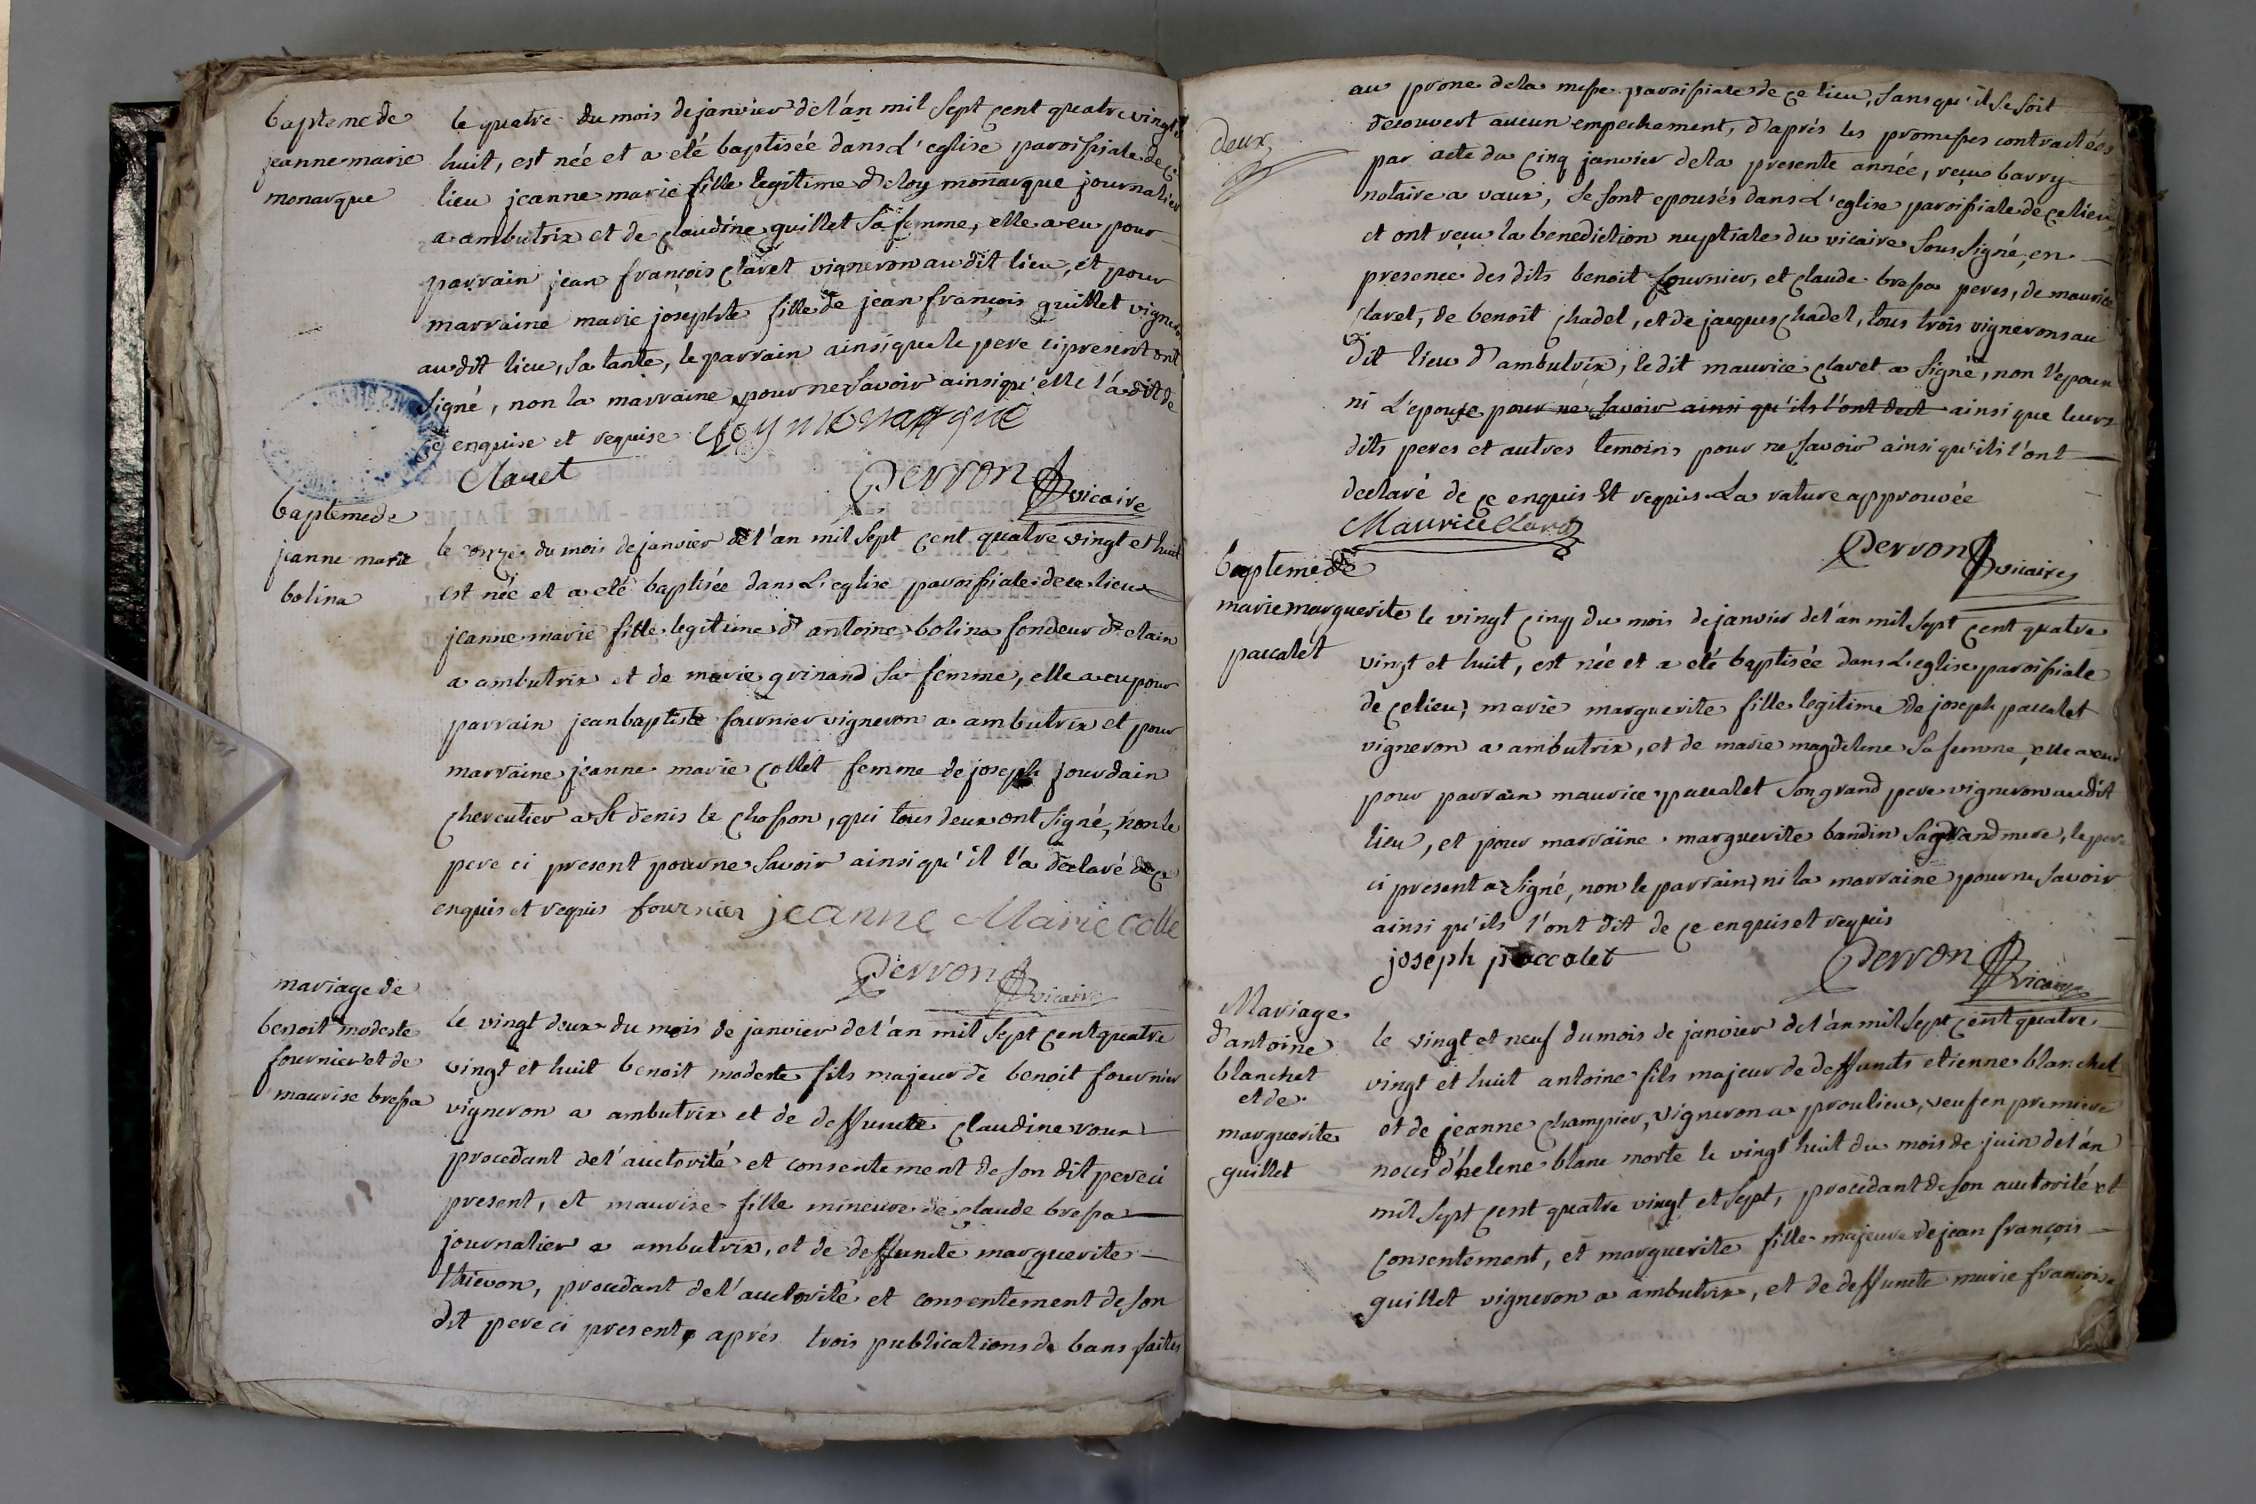 baptême de
jeanne marie
monarque
le quatre du mois de janvier de l'an mil sept cent quatre vingt
huit, est née et a eté baptisée dans L'eglise paroissiale de ce
lieu jeanne marie fille legitime d'eloy monarque journalier
a ambutrix et de claudine guillet sa femme, elle a eu pour
parrain jean françois clavet vigneron au dit lieu, et pour
marraine marie josephte fille de jean françois guillet vigneron
au dit lieu, sa tante, le parrain ainsi que le pere ci present ont
signé, non la marraine pour ne savoir ainsi qu'elle l'a dit de
ce enquise et requise Eloy monarque
Clavet
Perron vicaire
baptême de
jeanne marie
bolina
le onze du mois de janvier de l'an mil sept cent quatre vingt et huit
est née et a eté baptisée dans L'eglise paroissiale de ce lieu
jeanne marie fille legitime d'antoine bolina fondeur d'etain
a ambutrix et de marie grinand sa femme, elle a eu pour
parrain jean baptiste fournier vigneron a ambutrix et pour
marraine jeanne marie collet femme de joseph jourdain
chercutier a St denis le chosson, qui tous deux ont signé, non le
pere ci present pour ne savoir ainsi qu'il l'a declaré de ce
enquis et requis fournier jeanne Marie colle
Perron vicaire
mariage de
benoit modeste
fournier et de
maurise bressa
le vingt deux du mois de janvier de l'an mil sept cent quatre
vingt et huit benoit modeste fils majeur de benoit fournier
vigneron a ambutrix et de deffuncte claudine roux
procedant de l'auctorité et consentement de son dit pere ci
present, et maurise fille mineure de claude bressa
journalier a ambutrix, et de deffuncte marguerite
thievon, procedant de l'auctorité et consentement de son
dit pere ci present, aprés trois publications de bans faites
deux
au prone de la messe paroissiale de ce lieu, sans qu'il se soit
decouvert aucun empechement, d'aprés les promesses contractées
par acte du cinq janvier de la presente année, reçue barry
notaire a vaux, se sont epousés dans L'eglise paroissiale de ce lieu,
et ont reçu la benediction nuptiale du vicaire soussigné, en
presence des dits benoit fournier, et claude bressa peres, de maurice
clavet, de benoit chadel, et de jacques chadel, tous trois vignerons au
dit lieu d'ambutrix, le dit maurice clavet a signé, non l'epoux
ni L'epouse pour ne savoir ainsi qu'ils l'ont decl ainsi que leurs
dits peres et autres temoins pour ne savoir ainsi qu'ils l'ont
declaré de ce enquis et requis. La rature approuvée
Maurice Clavet
Perron vicaire
baptême de
marie marguerite
paccalet
le vingt cinq du mois de janvier de l'an mil sept cent quatre
vingt et huit, est née et a eté baptisée dans L'eglise paroissiale
de ce lieu, marie marguerite fille legitime de joseph paccalet
vigneron a ambutrix, et de marie magdelene sa femme, elle a eu
pour parrain maurice paccalet son grand pere vigneron au dit
lieu, et pour marraine marguerite bandin sa grand mere, le pere
ci present a signé, non le parrain, ni la marraine pour ne savoir
ainsi qu'ils l'ont dit de ce enquis et requis
joseph paccalet
Perron vicaire
Mariage
d'antoine
blanchet
et de
marguerite
guillet
le vingt et neuf du mois de janvier de l'an mil sept cent quatre
vingt et huit antoine fils majeur de deffuncts etienne blanchet
et de jeanne champier, vigneron a proulieu, veuf en premiere
noces d'helene blanc morte le vingt huit du mois de juin de l'an
mil sept cent quatre vingt et sept, procedant de son auctorité et
consentement, et marguerite fille majeure de jean françois
guillet vigneron a ambutrix, et de deffuncte marie françoise